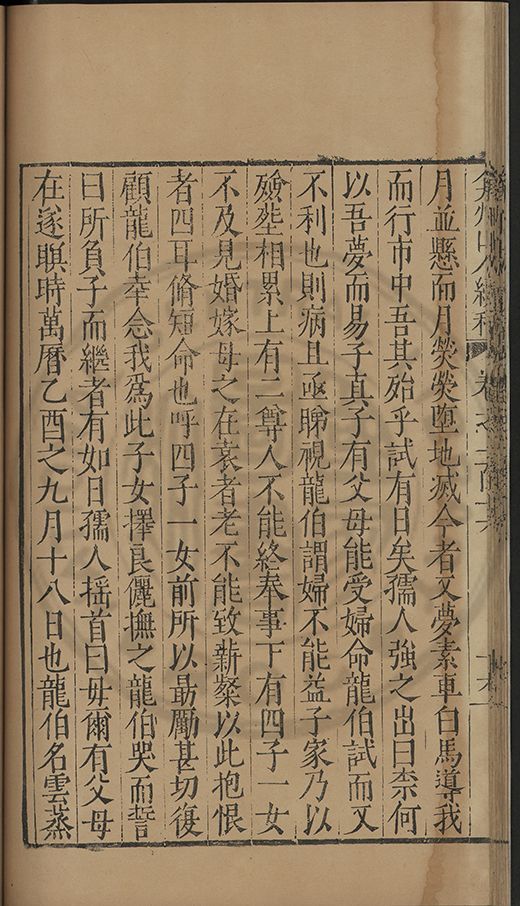 弇州山人續稿 卷之一百十六
月並懸而月熒熒墮地滅今者又夢素車白馬導我
而行市中吾其殆乎試有日矣孺人強之出曰柰何
以吾夢而易子真子有父母能受婦命龍伯試而又
不利也則病且亟睇視龍伯謂婦不能益子家乃以
殮塟相累上有二尊人不能終奉事下有四子一女
不及見婚嫁母之在衰者老不能致薪粲以此抱恨
者四耳脩短命也呼四子一女前所以勗勵甚切復
顧龍伯幸念我爲此子女擇良儷撫之龍伯哭而誓
曰所負子而繼者有如日孺人揺首曰毋爾有父母
在遂瞑時萬曆乙酉之九月十八日也龍伯名雲蒸